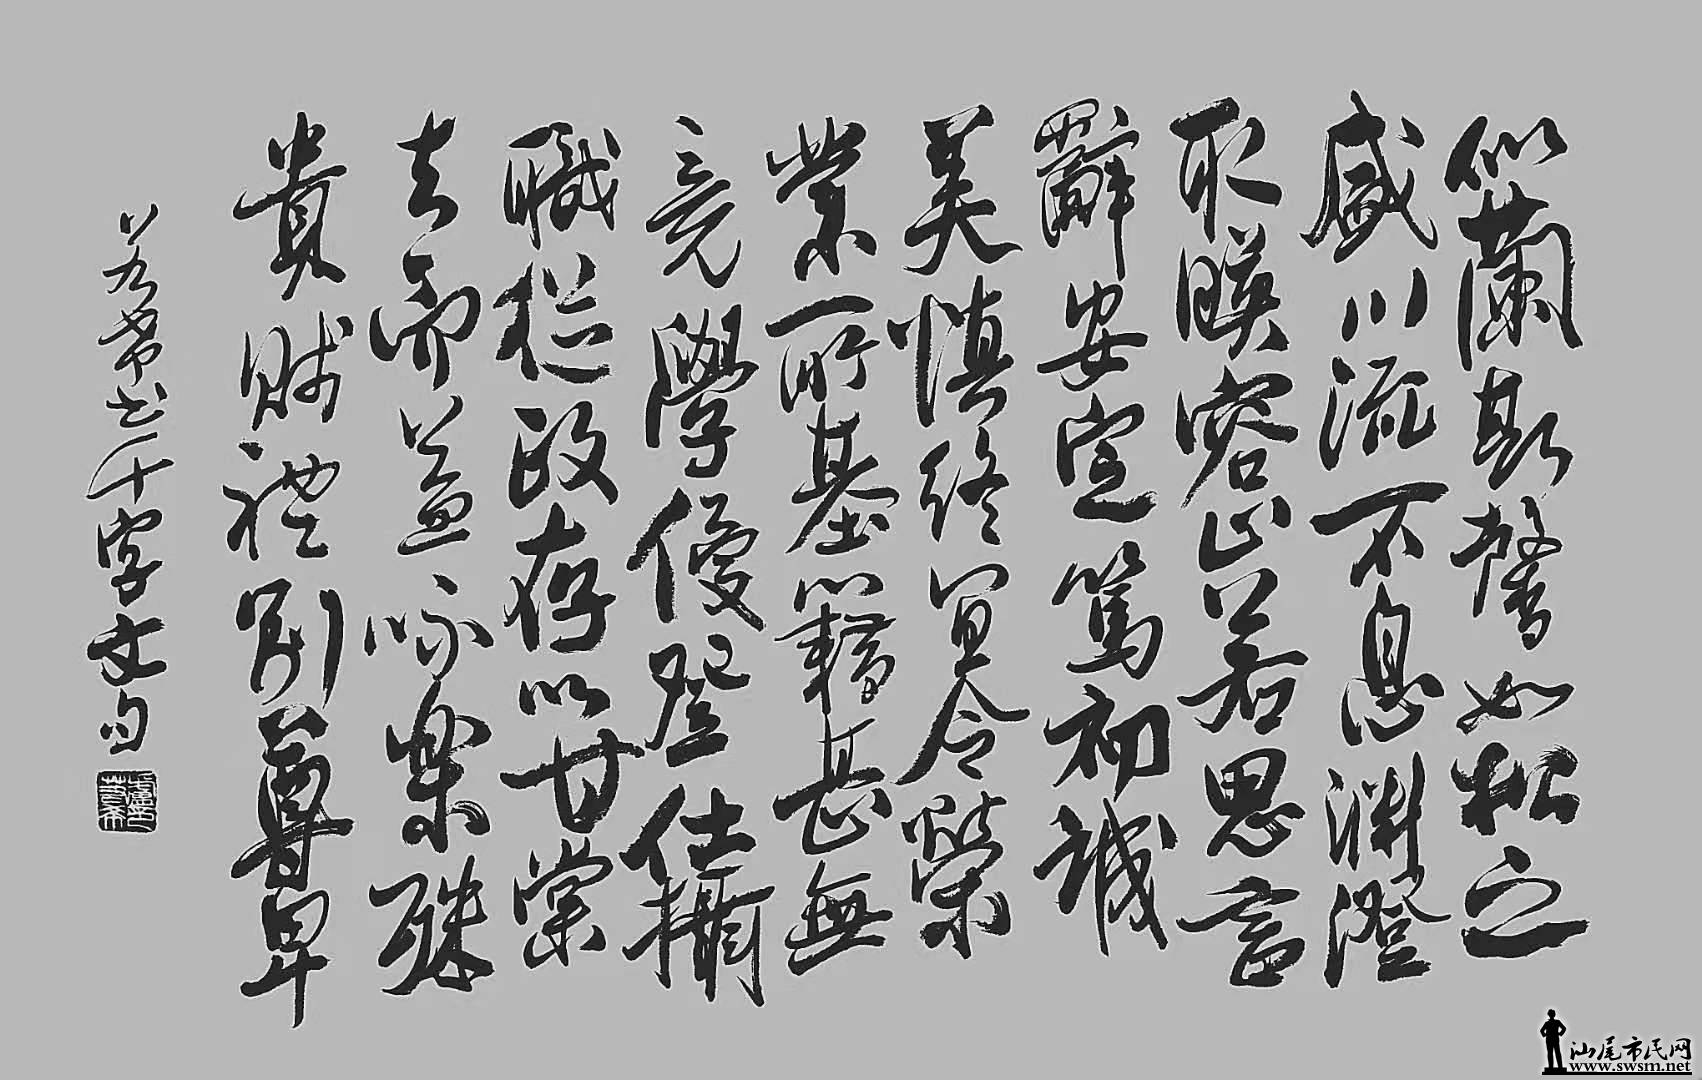 似蘭斯馨如松之
盛川流不息淵澄
取暎容止若思言
辭安定篤初誠
美慎終宜令榮
業所基籍甚無
竟學優登仕攝
職從政存以甘棠
去而益詠樂殊
貴賤禮別尊卑
若希书千字文句
汕尾市民网
www.swsm.net